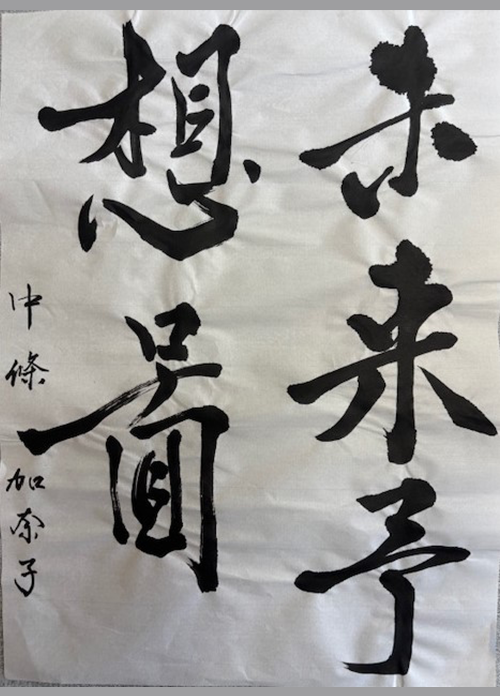 未来予
想圖
中條加奈子